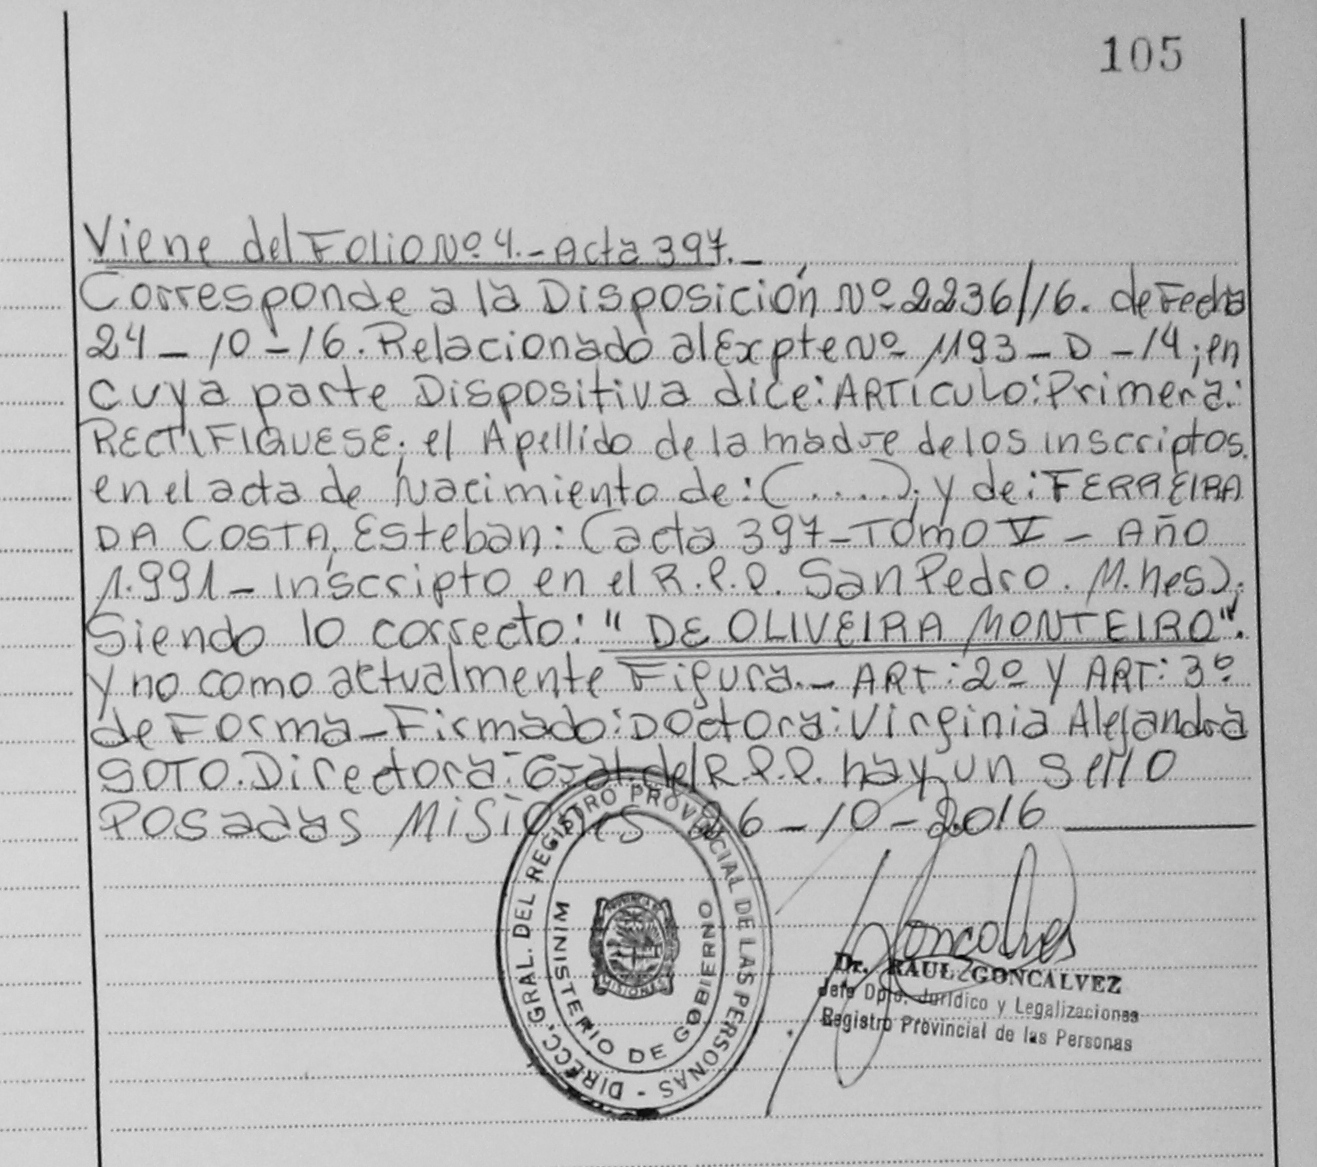 105
Viene del Folio Nº 4.- Acta 397.-
Corresponde a la Disposición Nº 2236/16. de Fecha
24-10-16. Relacionado al Expte Nº 1193-D-14; en
cuya parte Dispositiva dice: ARTÍCULO: Primera:
RECTIFIQUESE; el Apellido de la madre de los inscriptos.
en el acta de Nacimiento de: (....); y de: FERREIRA
DA COSTA, Esteban: (acta 397-TOMO V - Año
1.991- inscripto en el R.P.P. San Pedro. M.nes);
Siendo lo correcto: "DE OLIVEIRA MONTEIRO".
y no como actualmente Figura.- ART: 2º Y ART: 3º
de Forma-Firmado: Doctora: Virginia Alejandra
SOTO. Directora: Gral. del R.P.P. hay un sello
Posadas Misiones 26-10-2016
DIRECC. GRAL. DEL REGISTRO PROVINCIAL DE LAS PERSONAS -
MINISTERIO DE GOBIERNO
PROVINCIA DE
MISIONES
Goncalves
Dr. RAUL GONCALVEZ
Jefe Dpto. Jurídico y Legalizaciones
Registro Provincial de las Personas